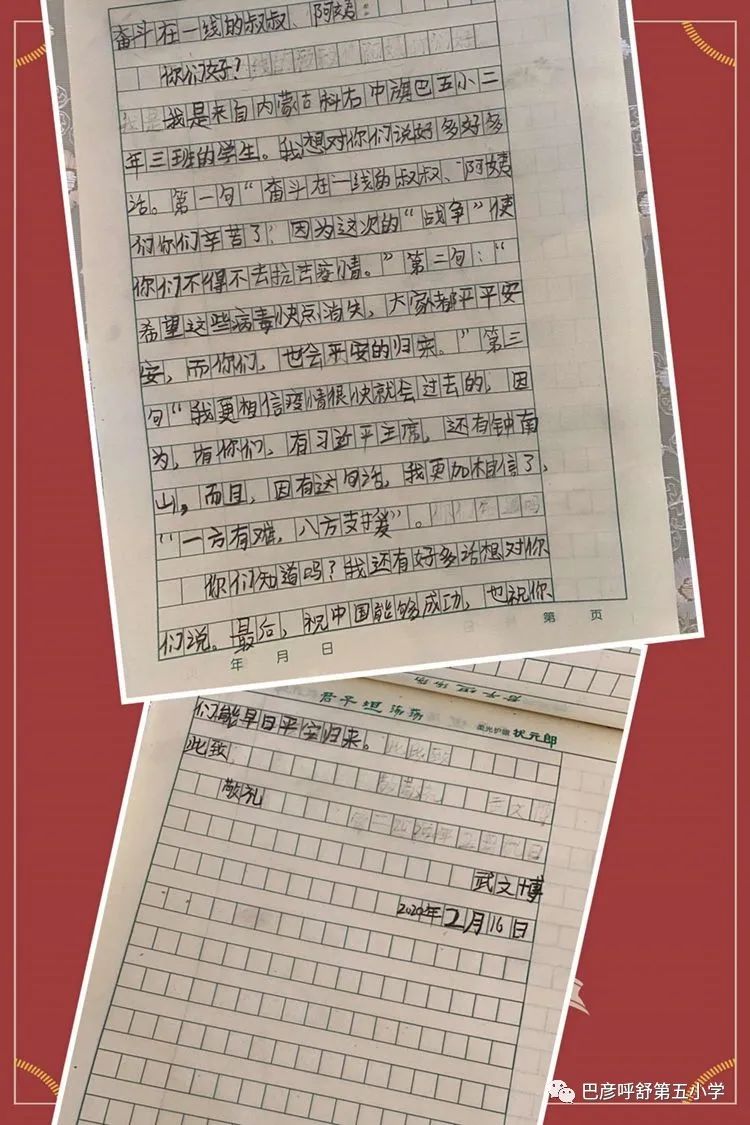 奋斗在一线的叔叔、阿姨：
你们好？
我是来自内蒙古科右中旗巴五小二
年三班的学生。我想对你们说好多好多
话。第一句“奋斗在一线的叔叔、阿姨
们你们辛苦了，因为这次的“战争”使
你们不得不去抗击疫情。”第二句：“
希望这些病毒快点消失，大家都平平安
安，而你们，也会平安的归来。”第三
句“我更相信疫情很快就会过去的，因
为，有你们，有习近平主席，还有钟南
山，而且，因有这句话，我更加相信了，
“一方有难，八方支援”。
你们知道吗？我还有好多话想对你
们说。最后，祝中国能够成功，也祝你
年 月 日
第 页
君子坦荡荡
柔光护眼 状元郎
们能早日平安归来。
此致
敬礼
武文博
2020年2月16日
巴彦呼舒第五小学